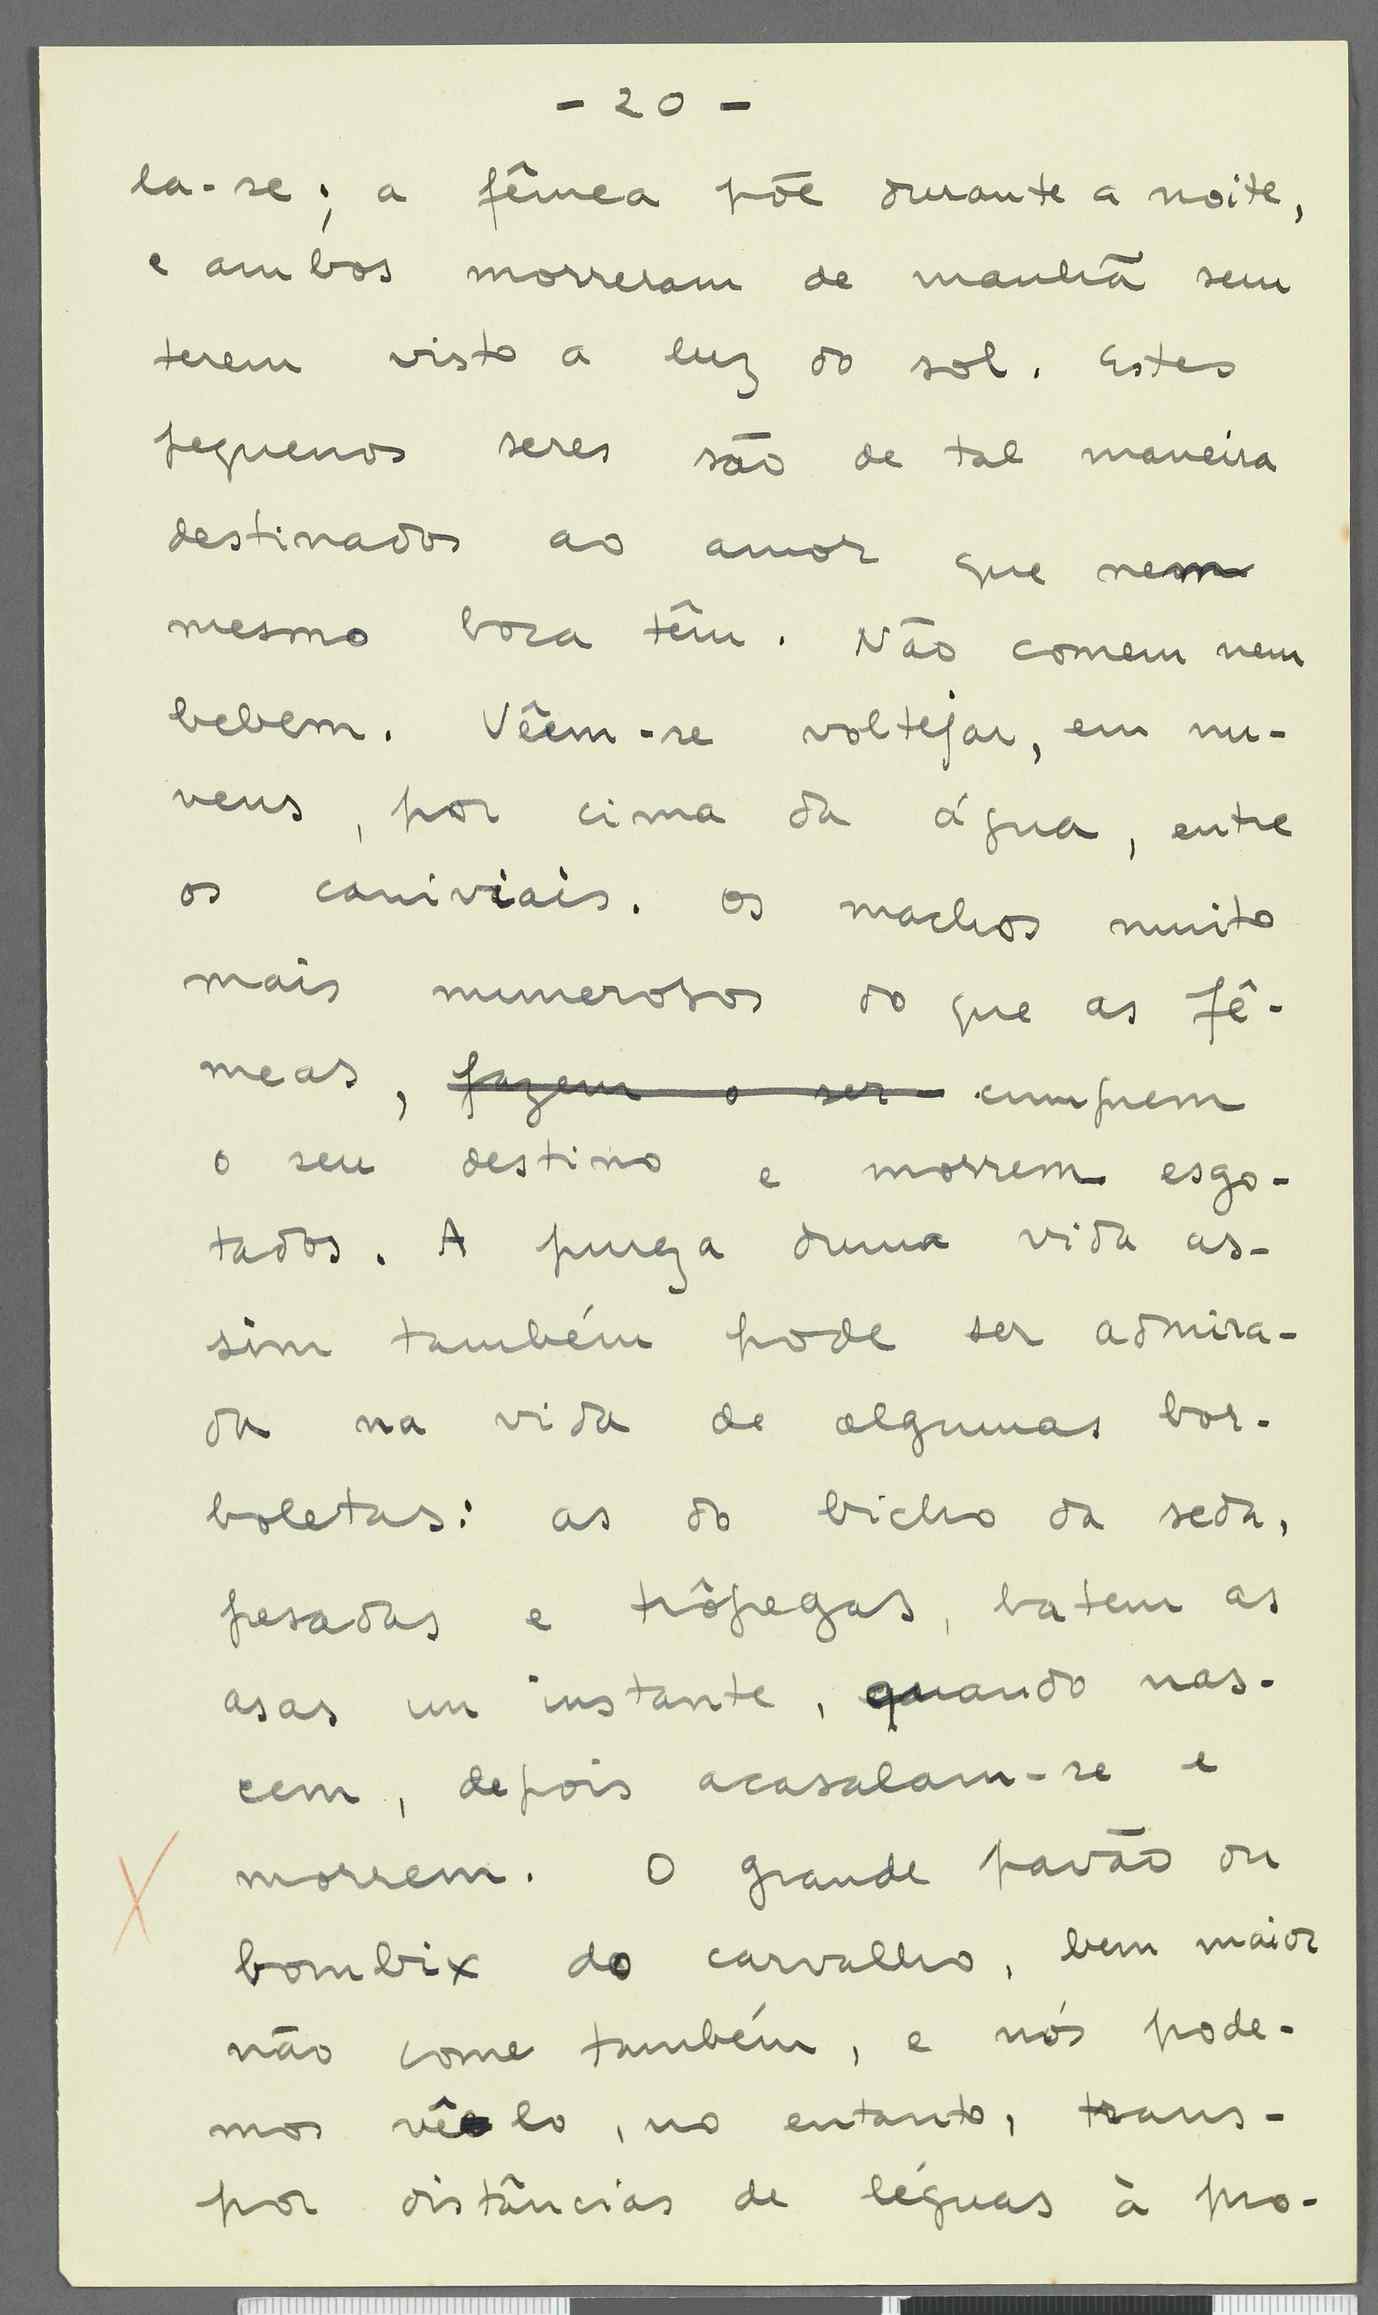 - 20 -
la-se; a fêmea põe durante a noite,
e ambos morreram de manhã sem
terem visto a luz do sol. Estes
pequenos seres são de tal maneira
destinados ao amor que nem
mesmo boca têm. Não comem nem
bebem. Vêem-se voltejar, em nu-
vens, por cima da água, entre
os caniviais. Os machos muito
mais numerosos do que as fê-
meas, fazem o ser- cumprem
o seu destino e morrem esgo-
tados. A pureza duma vida as-
sim também pode ser admira-
da na vida de algumas bor-
boletas: as do bicho da seda,
pesadas e trôpegas, batem as
asas um instante, quando nas-
cem, depois acasalam-se e
morrem. O grande pavão ou
bombix do carvalho, bem maior
não come também, e nós pode-
mos vê-lo, no entanto, trans-
por distâncias de léguas à pro-